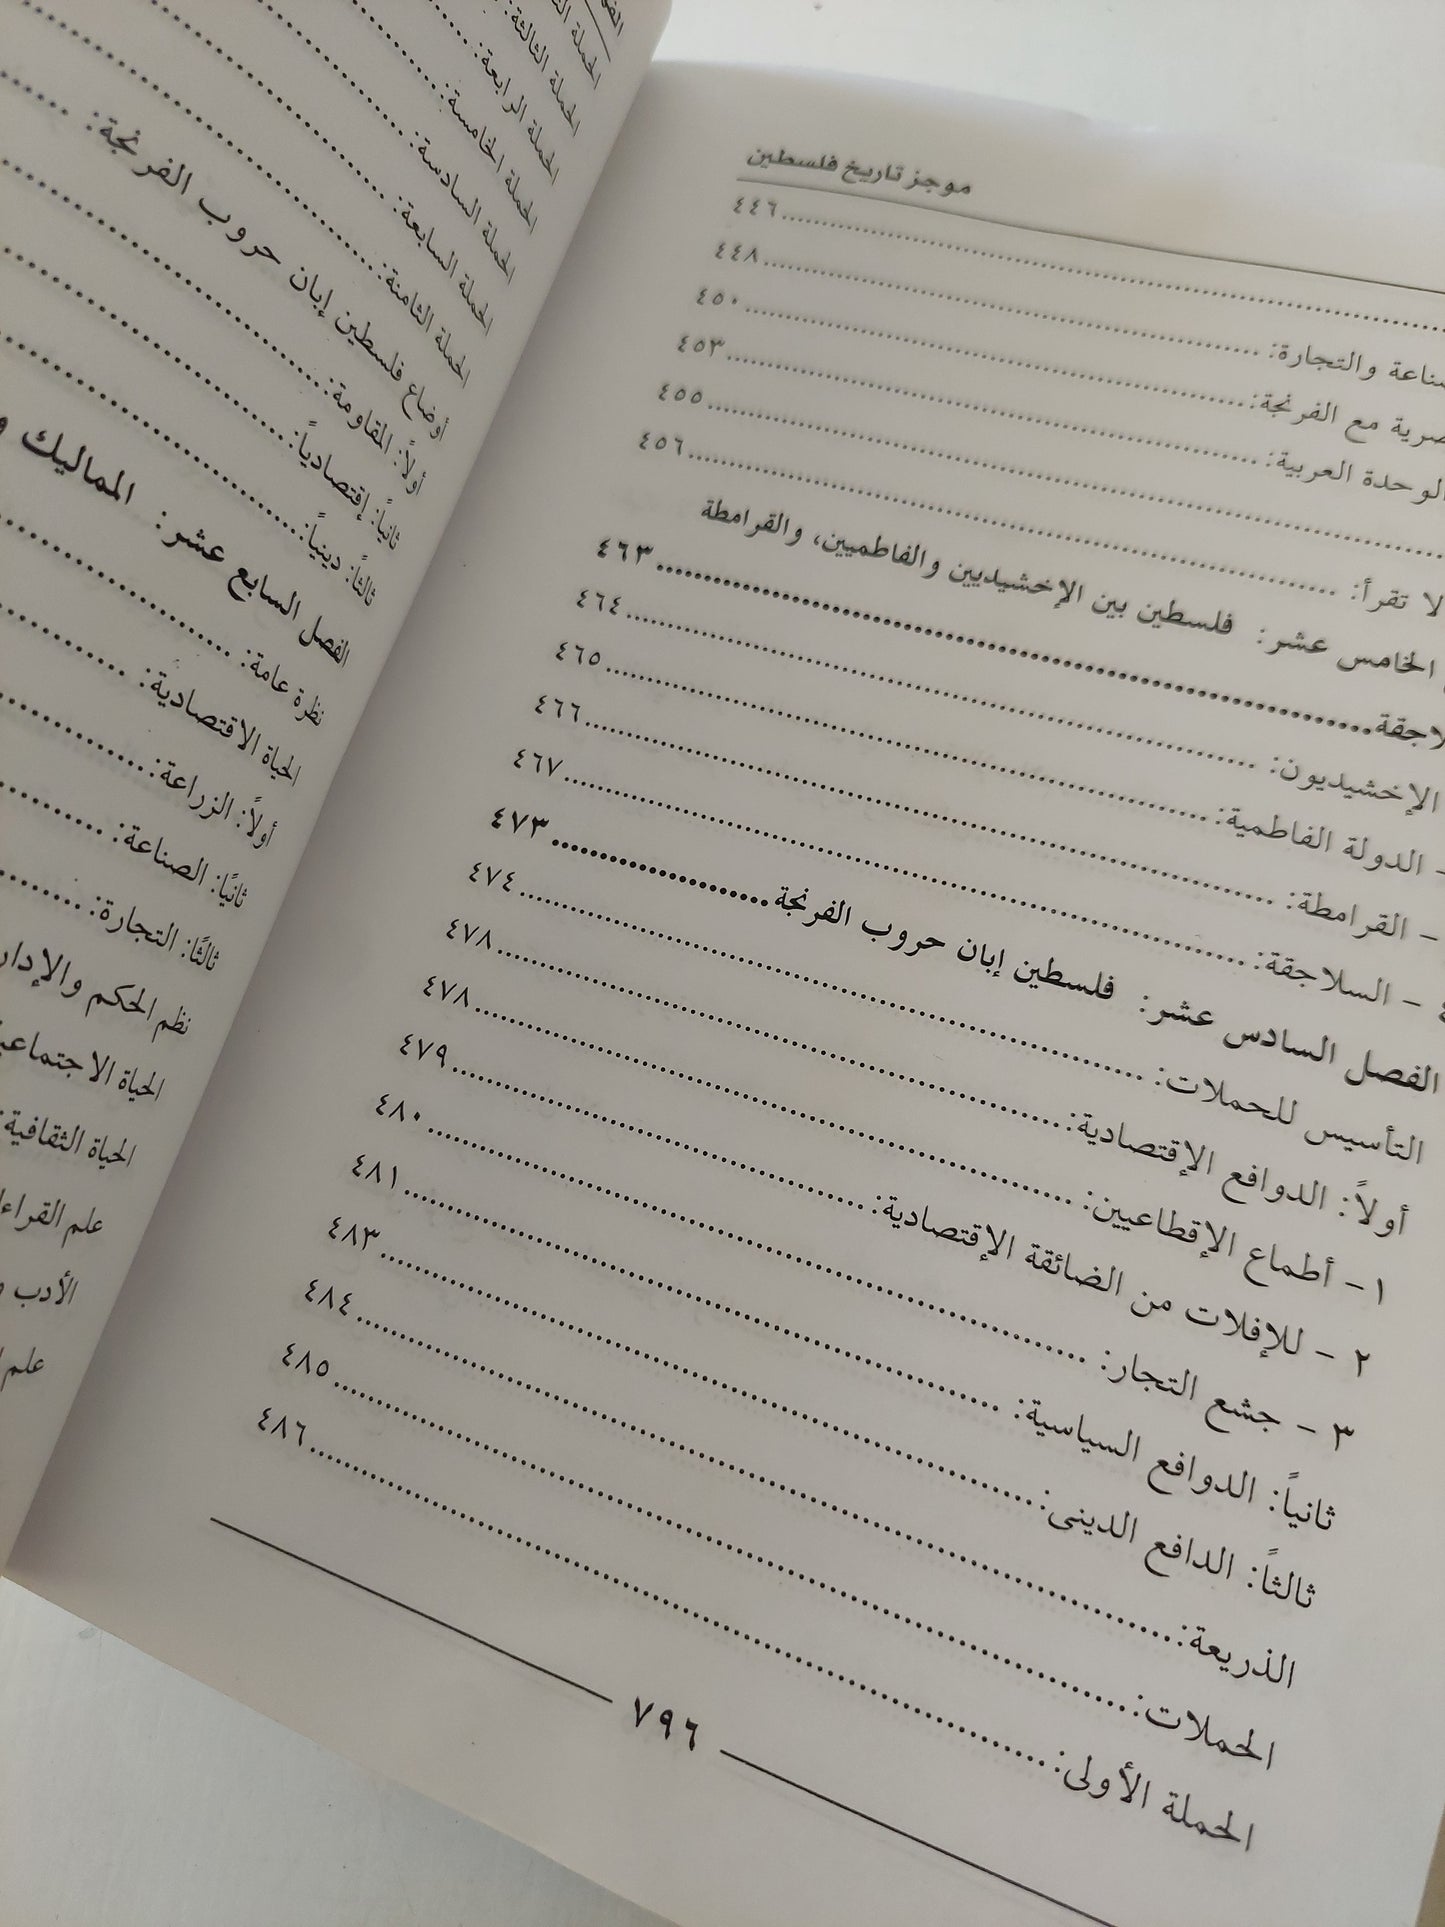 موجز تاريخ فلسطين
................................................ ٤٤٦
والتجارة: ................................................ ٤٤٨
مع الفرنجة: ................................................ ٤٥٠
الوحدة العربية: ................................................ ٤٥٣
................................................ ٤٥٥
لا تقرأ: ................................................ ٤٥٦
الخامس عشر: فلسطين بين الإخشيديين والفاطميين، والقرامطة
................................................ ٤٦٣
الإخشيديون: ................................................ ٤٦٤
- الدولة الفاطمية: ................................................ ٤٦٥
- القرامطة: ................................................ ٤٦٦
- السلاجقة: ................................................ ٤٦٧
الفصل السادس عشر: فلسطين إبان حروب الفرنجة .................... ٤٧٣
التأسيس للحملات: ................................................ ٤٧٤
أولاً: الدوافع الإقتصادية: ................................................ ٤٧٨
١- أطماع الإقطاعيين: ................................................ ٤٧٨
٢ - للإفلات من الضائقة الإقتصادية: ................................................ ٤٧٩
٣ - جشع التجار: ................................................ ٤٨٠
ثانياً: الدوافع السياسية: ................................................ ٤٨١
ثالثاً: الدافع الدينى: ................................................ ٤٨٣
الذريعة: ................................................ ٤٨٤
الحملات: ................................................ ٤٨٥
الحملة الأولى: ................................................ ٤٨٦
٧٩٦
الحملة
الحملة الثالثة:
الحملة الرابعة:
الحملة الخامسة:
الحملة السادسة:
الحملة السابعة:
الحملة الثامنة:
أوضاع فلسطين إبان حروب الفرنجة:
أولاً: المقاومة:
ثانياً: إقتصادياً:
ثالثاً: دينياً:
الفصل السابع عشر: المماليك
نظرة عامة:
الحياة الاقتصادية:
أولاً: الزراعة:
ثانيًا: الصناعة:
ثالثًا: التجارة:
نظم الحكم
الحياة
الحياة الثقافية:
علم
الأدب
علم